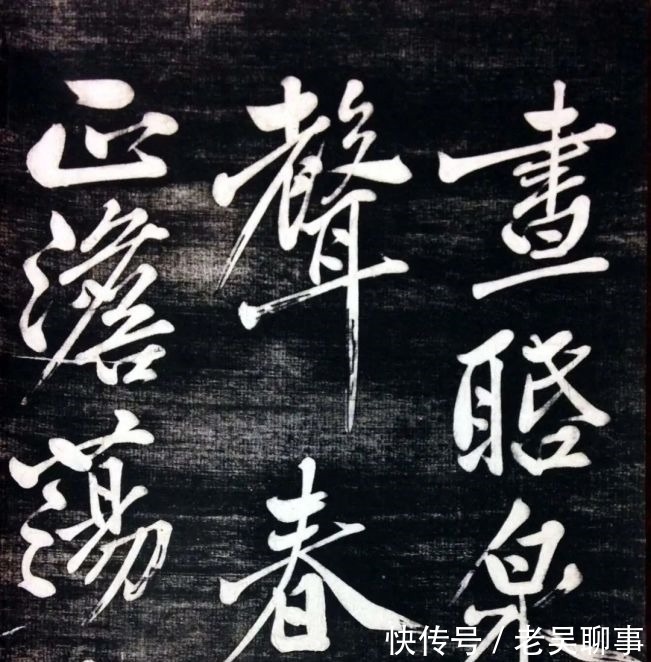 晝聒泉
聲春
正澹蕩
快传号 / 老吴聊事